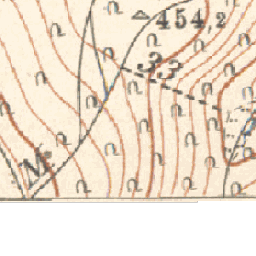 454,2
33
M.